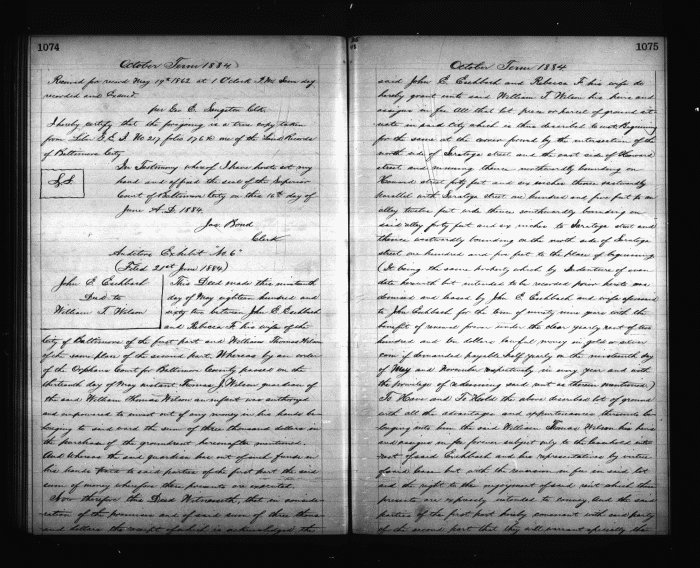 1074
October Term 1884
Received for record May 19th 1862 at 1 O'clock P.M. Same day
recorded and Exam'd.
per Geo. E. Sangston Clk.
I hereby certify that the foregoing is a true copy taken
from Liber No 217 folio 176 &c one of the Land Records
of Baltimore City
In Testimony whereof I have hereto set my
hand and affixed the seal of the Superior
Court of Baltimore City on this 16th day of
June A.D. 1884.
Jas. Bond
Clerk
Auditors Exhibit "No 6"
(Filed 21st June 1884)
John E. Eschbach
Deed to
William T. Wilson
This Deed made this nineteenth
day of May eighteen hundred and
sixty two between John E. Eschbach
and Rebecca F. his wife of the
City of Baltimore of the first part and William Thomas Wilson
of the same place of the second part. Whereas by an order
of the Orphans Court for Baltimore County passed on the
thirteenth day of May instant Thomas J. Wilson guardian of
the said William Thomas Wilson an infant was authorized
and empowered to invest out of any money in his hands be
longing to said ward the sum of three thousand dollars in
the purchase of the groundrent hereinafter mentioned.
And whereas the said guardian has out of said funds in
his hands paid to said parties of the first part the said
sum of money wherefore these presents are executed
Now therefore this Deed Witnesseth, that in consider
ation of the premises and of said sum of three thous
and dollars the receipt of which is acknowledged the
1075
October Term 1884
said John E. Eschbach and Rebecca F. his wife do
hereby grant unto said William T. Wilson his heirs and
assigns in fee All that lot piece or parcel of ground sit-
uate in said city which is thus described to wit: Beginning
for the same at the corner formed by the intersection of the
north side of Saratoga street and the east side of Howard
street and running thence northwardly bounding on
Howard street fifty feet and six inches thence eastwardly
parallel with Saratoga street one hundred and five feet to an
alley twelve feet wide thence southwardly bounding on
said alley fifty feet and six inches to Saratoga street and
thence westwardly bounding on the north side of Saratoga
street one hundred and five feet to the place of beginning.
(It being the same property which by Indenture of even
date herewith but intended to be recorded prior hereto was
demised and leased by John E. Eschbach and wife
to John Eschbach for the term of ninety nine years with the
benefit of renewal forever under the clear yearly rent of two
hundred and ten dollars lawful money in gold or silver
coin if demanded payable half yearly on the nineteenth day
of May and November respectively in every year and with
the privilege of redeeming said rent as therein mentioned.)
To Have and To Hold the above described lot of ground
with all the advantages and appurtenances thereunto be
longing unto him the said William Thomas Wilson his heirs
and assigns in fee forever subject only to the leasehold inter
est of said Eschbach and his representatives by virtue
of said lease but with the reversion in fee in said lot
and the right to the enjoyment of said rent which these
presents are expressly intended to convey. And the said
parties of the first part hereby covenant with said party
of the second part that they will warrant specially the